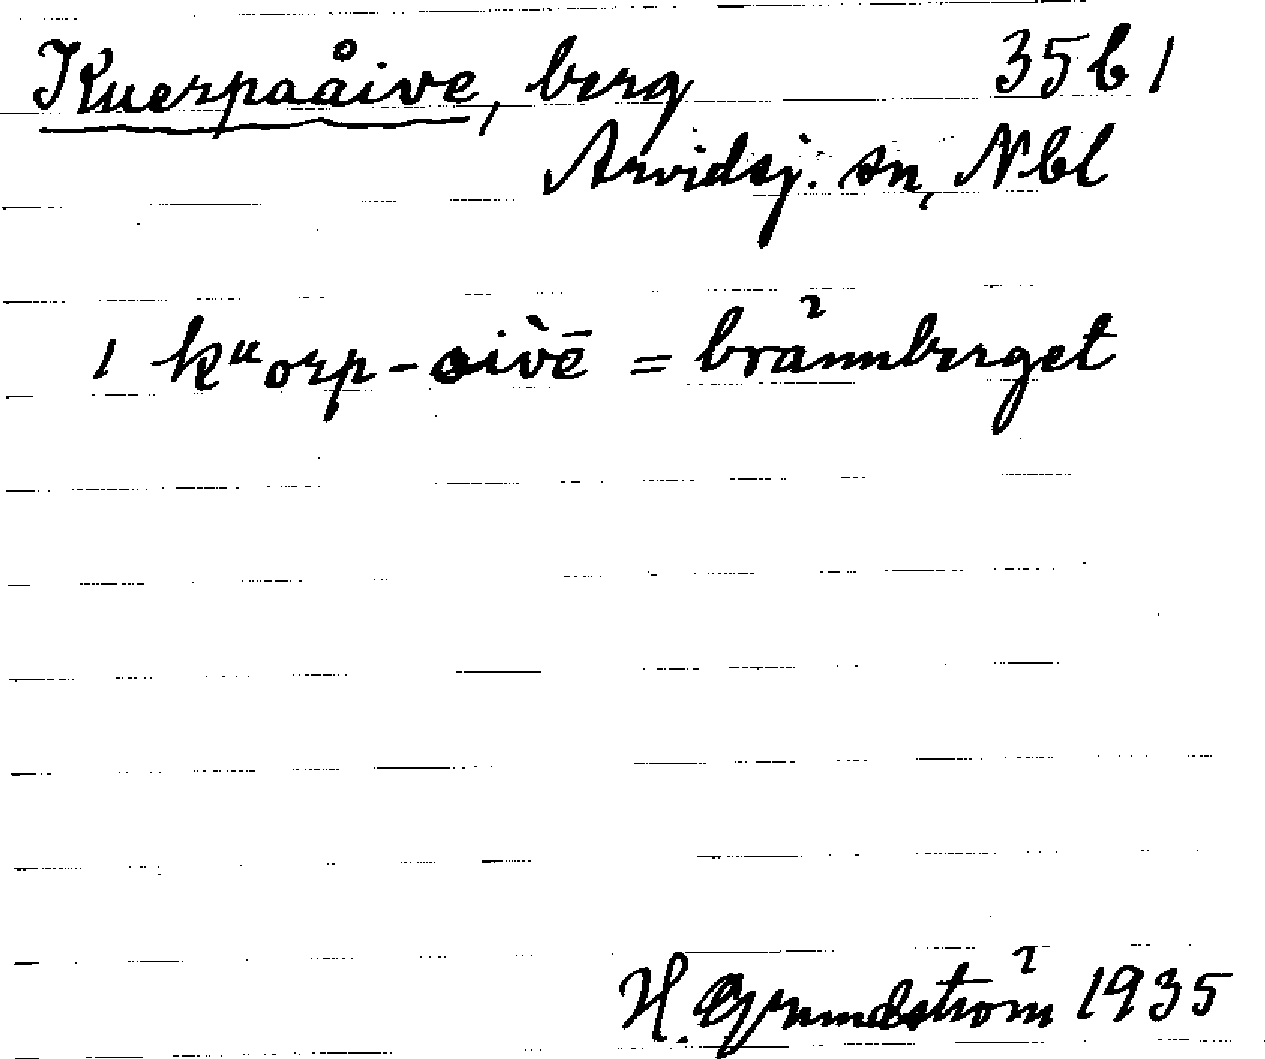 Kuerpaåive, berg 35b1
Arvidsj. sn, Nbl
1 kᵘorp-oivὲ̄ = brännberget
H. Grundström 1935